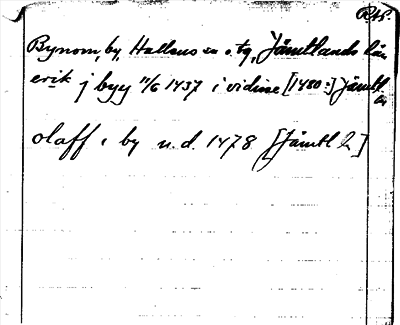 Bynom, by, Hallens sn o. tg, Jämtlands län
erik j byy 11/6 1437 i vidisse [1480:] Jämtl
olaff i by u.d. 1478 [Jämtl 2]